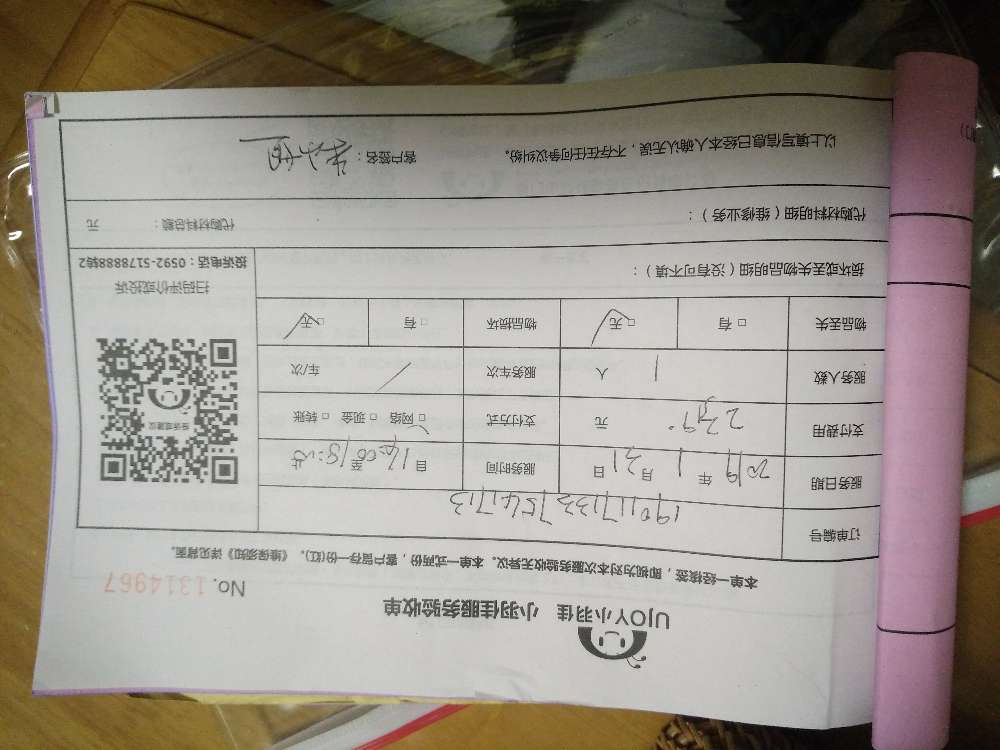 UJOY小羽佳 小羽佳服务验收单
No. 1314967
本单一经核签，即视为对本次服务验收无异议。本单一式两份，客户留存一份(红)。《维保须知》详见背面。
订单编号 1901171337541713
服务日期 2019年1月21日 服务时间 自14:00至18:05止
支付费用 239.元 支付方式 □网络 □现金 □转账
服务人数 1人 服务车次 / 车/次
物品丢失 □有 □无 物品损坏 □有 □无
维保或建议
扫码评价或投诉
投诉电话：0592-5178888转2
损坏或丢失物品明细（没有可不填）：
代购材料明细（维修业务）： 代购材料总额： 元
以上填写信息已经本人确认无误，不存在任何争议纠纷。 客户签名：